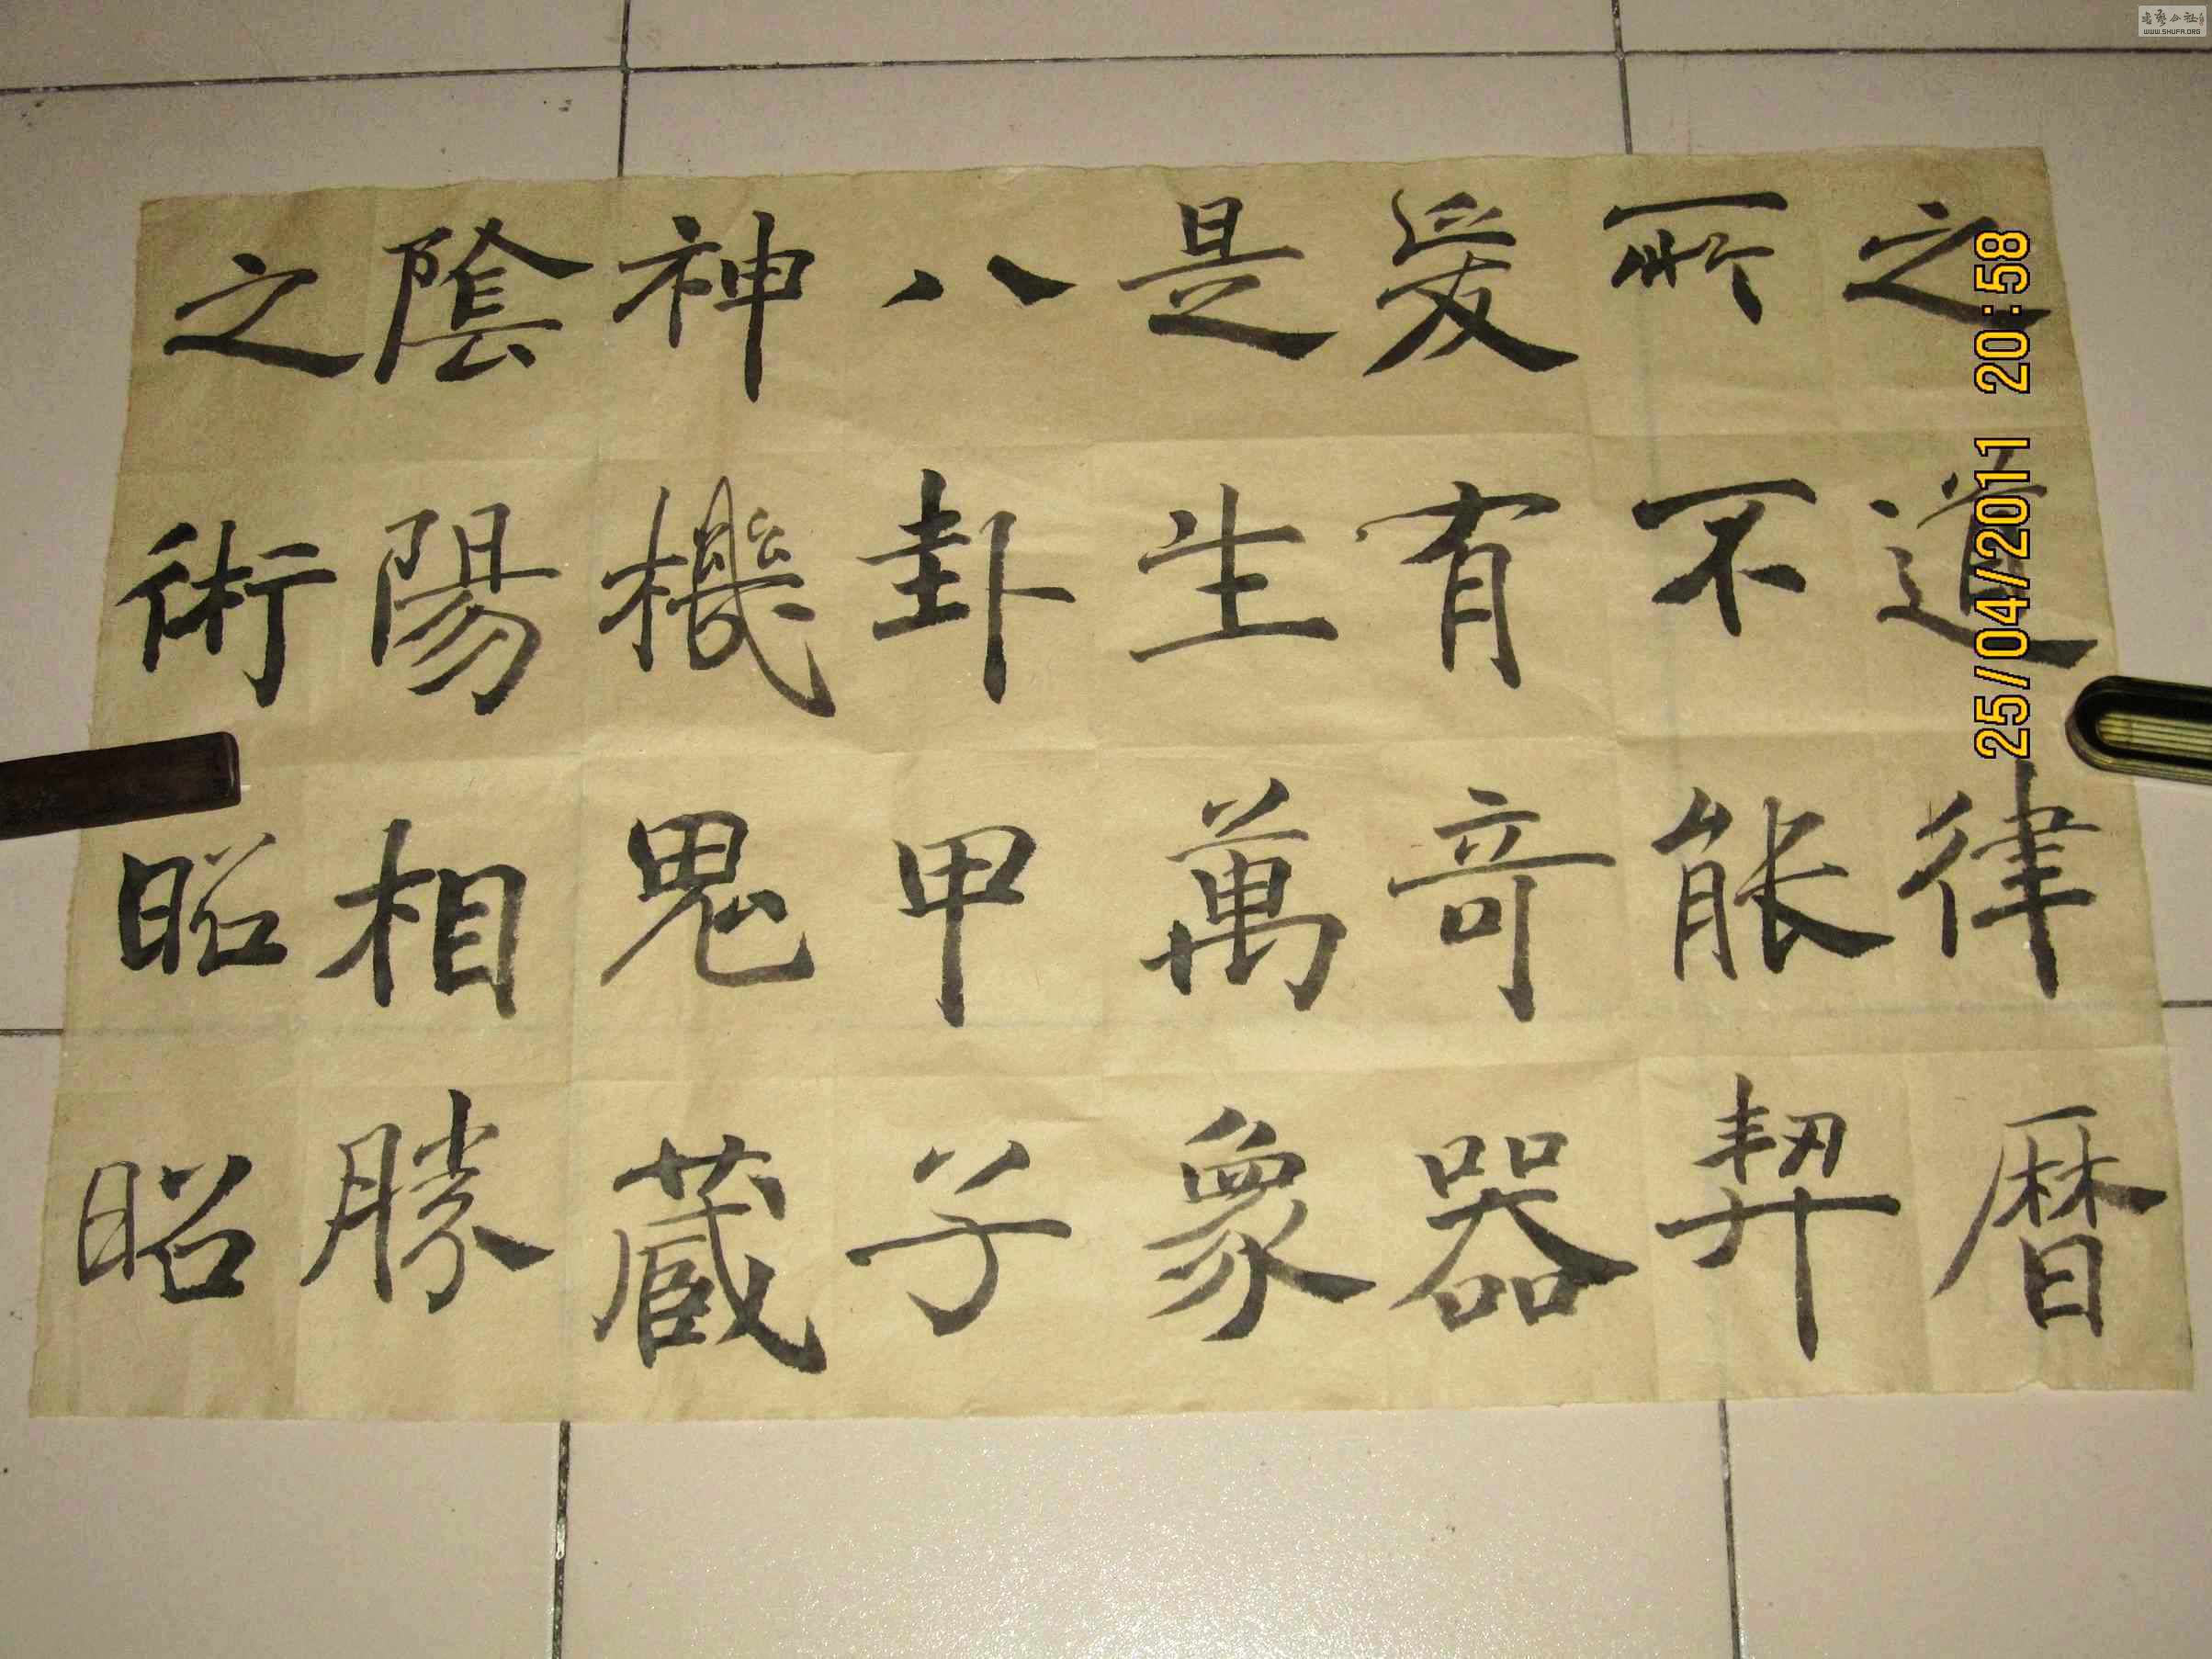 之道律曆
所不能契
爰有奇器
是生萬象
八卦甲子
神機鬼藏
陰陽相勝
之術昭昭
25/04/2011 20:58
WWW.SHUFA.ORG